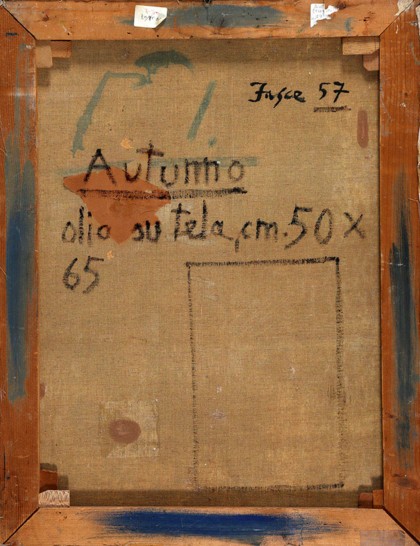 Fasce 57
Autunno
olio su tela, cm. 50 x
65